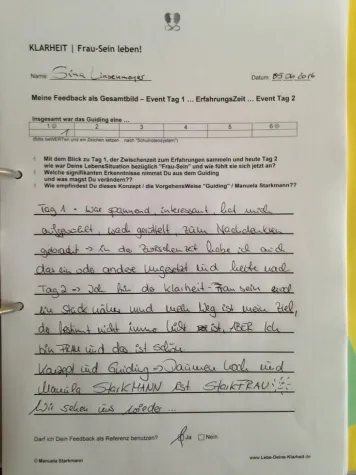 KLARHEIT | Frau-Sein leben!
Name: Sina Linsenmeyer Datum: 05.06.2016
Meine Feedback als Gesamtbild – Event Tag 1 ... ErfahrungsZeit ... Event Tag 2
Insgesamt war das Guiding eine ...
1 ☺ 2 3 4 5 6 ☹
1
(Bitte beWERTen und ein Zeichen setzen nach "Schulnotensystem")
Mit dem Blick zu Tag 1, der Zwischenzeit zum Erfahrungen sammeln und heute Tag 2
wie war Deine LebensSituation bezüglich "Frau-Sein" und wie fühlt sie sich jetzt an?
Welche signifikanten Erkenntnisse nimmst Du aus dem Guiding
und was magst Du verändern??
Wie empfindest Du dieses Konzept / die VorgehensWeise "Guiding" / Manuela Starkmann??
Tag 1 - War spannend, interessant, hat mich
aufgewühlt, wach gerüttelt, zum Nachdenken
gebracht → in der Zwischenzeit habe ich auch
das ein oder andere umgesetzt und heute nach
Tag 2 → Ich bin der Klarheit-Frau sein noch
ein Stück näher und mein Weg ist mein Ziel,
der bestimmt nicht immer leicht ist, ABER Ich
bin FRAU und das ist schön
Konzept und Guiding → Daumen hoch und
Manuela STARKMANN ist STARKFRAU
Wir sehen uns wieder ...
Darf ich Dein Feedback als Referenz benutzen? Ja Nein
© Manuela Starkmann www.Lebe-Deine-Klarheit.de